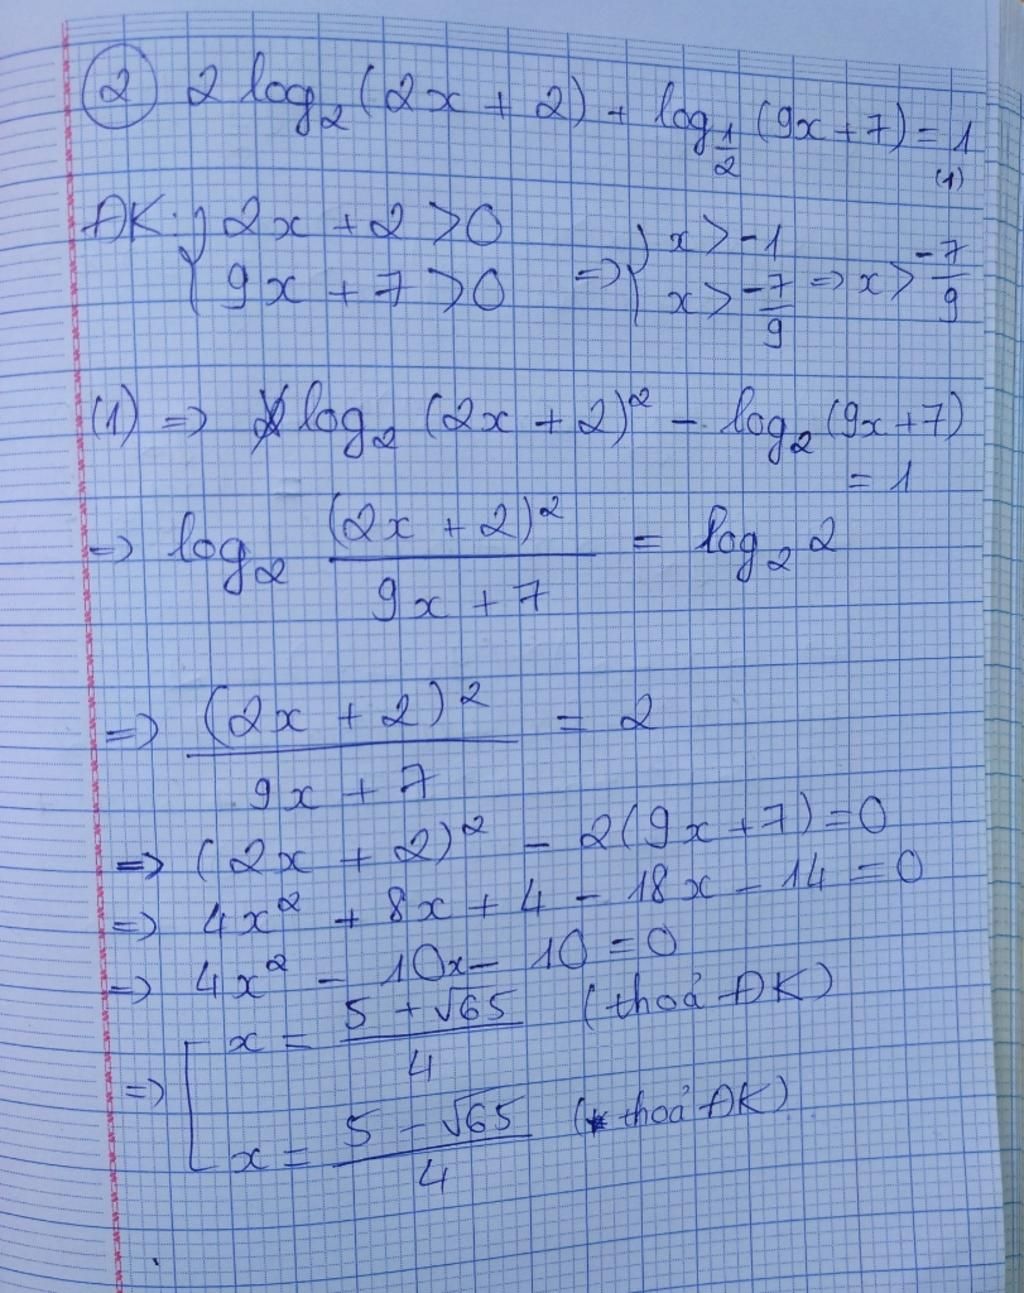 ② 2 log₂ (2x + 2) + log_{1/2} (9x + 7) = 1 (1)
ĐK: { 2x + 2 > 0 ; 9x + 7 > 0 => { x > -1 ; x > -7/9 => x > -7/9
(1) => log₂ (2x + 2)² - log₂ (9x + 7)
= 1
=> log₂ (2x + 2)²/(9x + 7) = log₂ 2
=> (2x + 2)²/(9x + 7) = 2
=> (2x + 2)² - 2(9x + 7) = 0
=> 4x² + 8x + 4 - 18x - 14 = 0
=> 4x² - 10x - 10 = 0
=> [ x = (5 + √65)/4 (thoả ĐK)
x = (5 - √65)/4 (thoả ĐK)